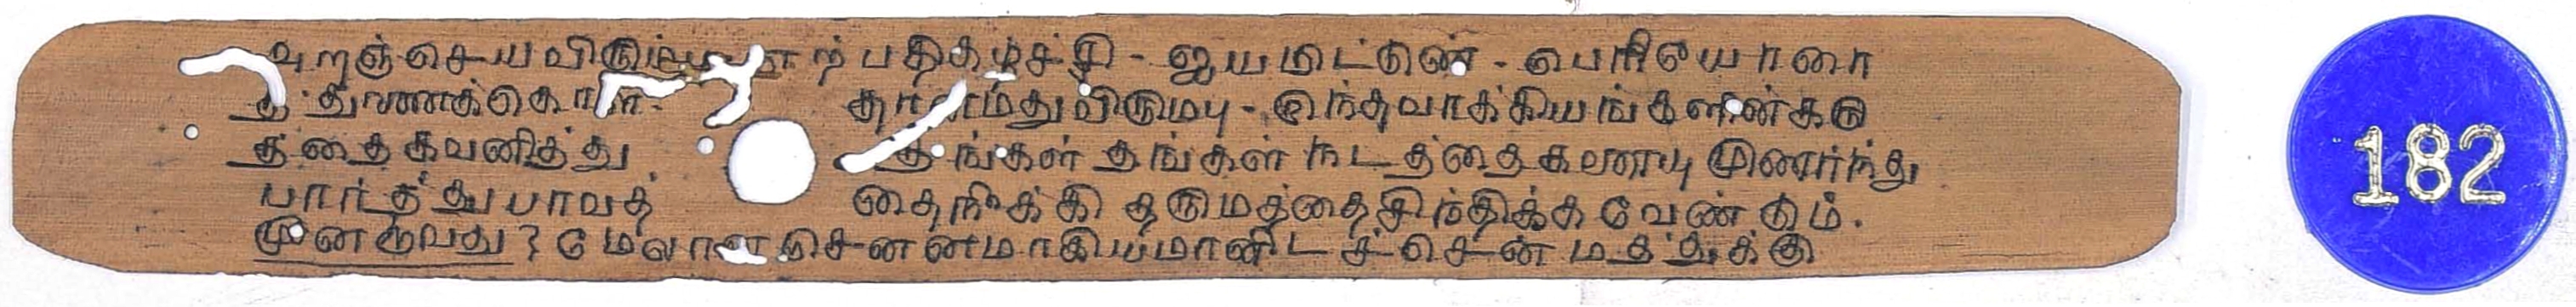 புறஞ்செய விரும்பு ஏற்பதிகழ்ச்சி - ஐயமிட்டுண் - பெரியோரை
த் துணைக்கொள் - தானமது விரும்பு - இந்தவாக்கியங்களின்கரு
த்தைகவனித்து தங்கள் தங்கள் நடத்தைகளையு முணர்ந்து
பார்த்து பாவத்தைநிக்கி தருமத்தைசிந்திக்க வேண்டும்.
மூன்றாவது? மேலான சென்னமாகியமானிடச்சென்மத்துக்கு
182